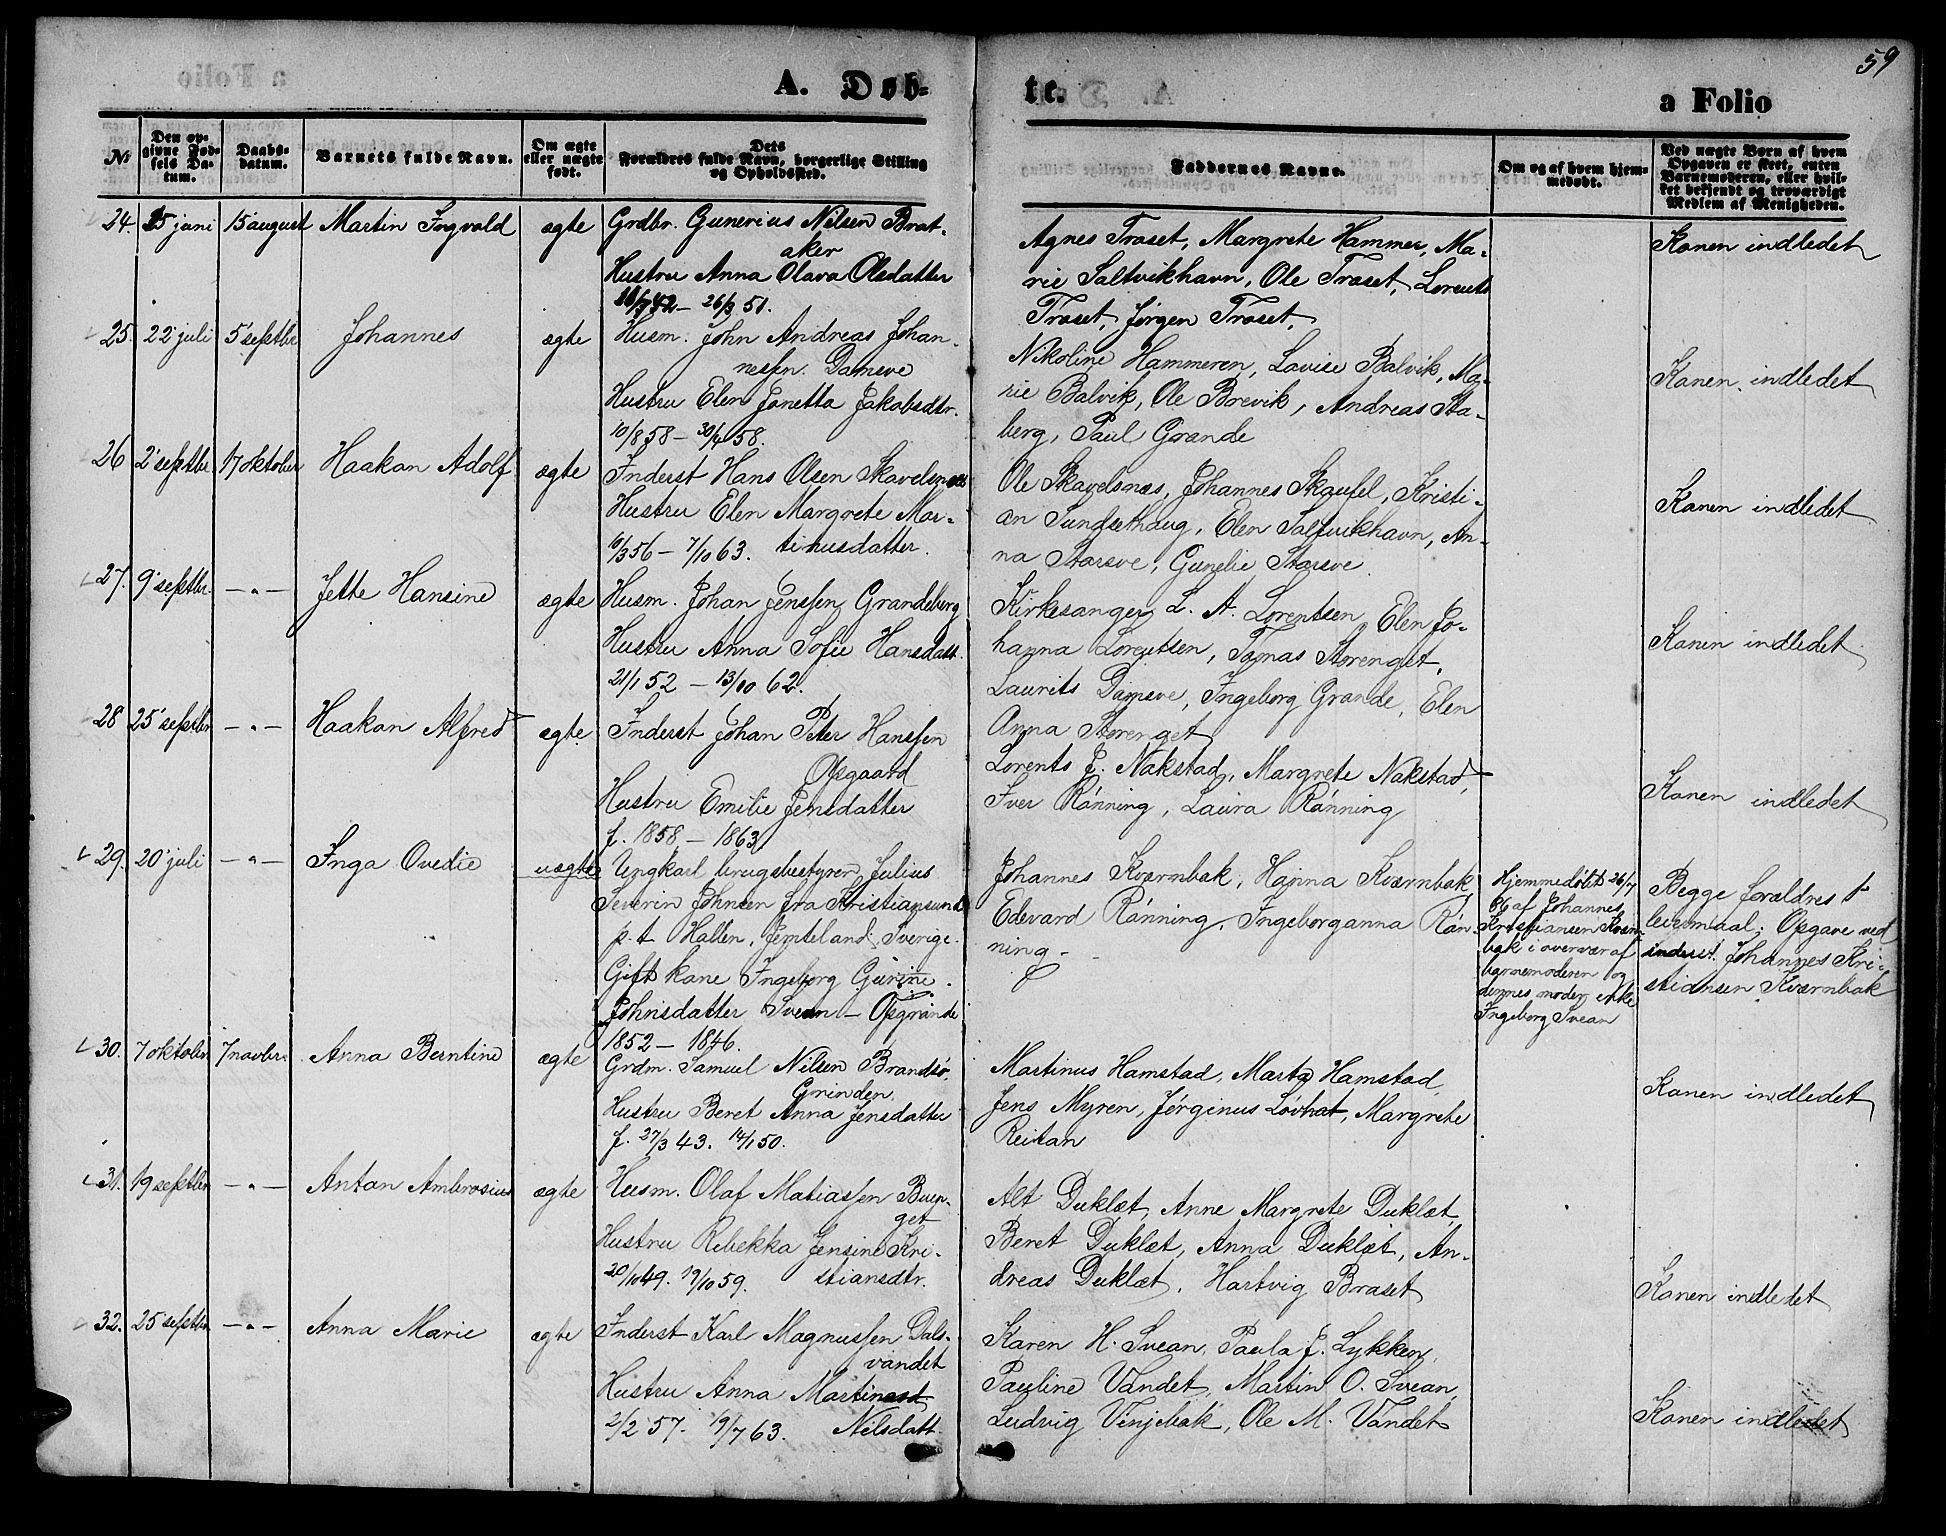 59
A. Døb-
te.
a Folio
№
Den op-
givne Fød-
sels Da-
tum.
Daabs-
datum.
Barnets fulde Navn.
Om ægte
eller uægte
født.
Dets
Forældres fulde Navn, borgerlige Stilling
og Opholdssted.
Faddernes Navne.
Om og af hvem hjem-
medøbt.
Ved uægte Børn af hvem
Opgaven er skeet, enten
Barnemoderen, eller hvil-
ket bekjendt og troværdigt
Medlem af Menigheden.
24. 25 juni 15 august Martin Ingvald ægte
Grdbr. Gunerius Nilsen Brat-
aker
Hustru Anna Olava Olsdatter
42 - 26/3 51.
Agnes Traset, Margrete Hammer, Ma-
rie Saltvikhavn, Ole Traset, Lorents
Traset, Jørgen Traset.
Konen indledet
25. 22 juli 5 septbr Johannes ægte
Husm. John Andreas Johan-
nessen. Damsve
Hustru Elen Jonetta Jakobsdtr.
10/8 58 - 30/4 58.
Nikoline Hammeren, Lovise Balvik, Ma-
rie Balvik, Ole Brevik, Andreas Sta-
berg, Paul Grande
Konen indledet
26 2 septbr. 17 oktober Haakan Adolf ægte
Inderst Hans Olsen Skavelsnæs
Hustru Elen Margrete Mar-
10/3 56 - 7/10 63. tinusdatter.
Ole Skavelsnæs, Johannes Skaufel, Kristi-
an Sundsethaug, Elen Saltvikhavn, An-
na Storsve, Gunelie Storsve
Konen indledet
27. 9 septbr. - " - Jette Hansine ægte
Husm. Johan Jenssen Grandeberg
Hustru Anna Sofie Hansdatt.
21/1 52 - 13/10 62.
Kirkesanger L. A. Lorentsen, Elen Jo-
hanna Lorentsen, Tomas Storenget,
Laurits Damsve, Ingeborg Grande, Elen
Anna Storenget
Konen indledet
28 25 septbr - " - Haakan Alfred ægte
Inderst Johan Peter Hanssen
Opgaard
Hustru Emilie Jensdatter
f. 1858 - 1863
Lorents J. Nakstad, Margrete Nakstad,
Iver Rønning, Laura Rønning
Konen indledet
29. 20 juli - " - Inga Ovedie uægte
Ungkarl brugsbestyrer Julius
Severin Johnsen fra Kristiansund
p.t Hallen, Jemteland, Sverige.
Gift kone Ingeborg Gurine
Johnsdatter Svean - Opgrande
1852 - 1846.
Johannes Kværnbak, Hanna Kværnbak
Edevard Rønning, Ingeborganna Røn-
ning -
Hjemmedøbt 26/7
86 af Johannes
Kristiansen Kværn-
bak i overvær af
barnemoderen og
dennes moder enke
Ingeborg Svean
Begge forældres 1'
leiermaal; Opgave ved
inderst Johannes Kri-
stiansen Kværnbak
30. 7 oktober 7 novbr. Anna Berntine ægte
Grdm. Samuel Nilsen Brandsø,
Grinden
Hustru Beret Anna Jensdatter
f. 27/3 43. 14/1 50.
Martinus Hamstad, Marta Hamstad
Jens Myren, Jørginus Løvhat, Margrete
Reitan
Konen indledet
31. 19 septbr - " - Antan Ambrosius ægte
Husm. Olaf Matiassen Buen-
get
Hustru Rebekka Jensine Kri-
20/10 49. 19/10 59. stiansdtr.
Alt Duklæt, Anne Margrete Duklæt,
Beret Duklæt, Anna Duklæt, An-
dreas Duklæt, Hartvig Braset
Konen indledet
32. 25 septbr - " - Anna Marie ægte
Inderst Karl Magnussen Dals-
vandet
Hustru Anna Martine
2/2 57. 19/7 63. Nilsdatt.
Karen H. Svean, Paula J. Lykken,
Pauline Vandet, Martin O. Svean,
Ludvig Vinjebak, Ole M. Vandet
Konen indledet